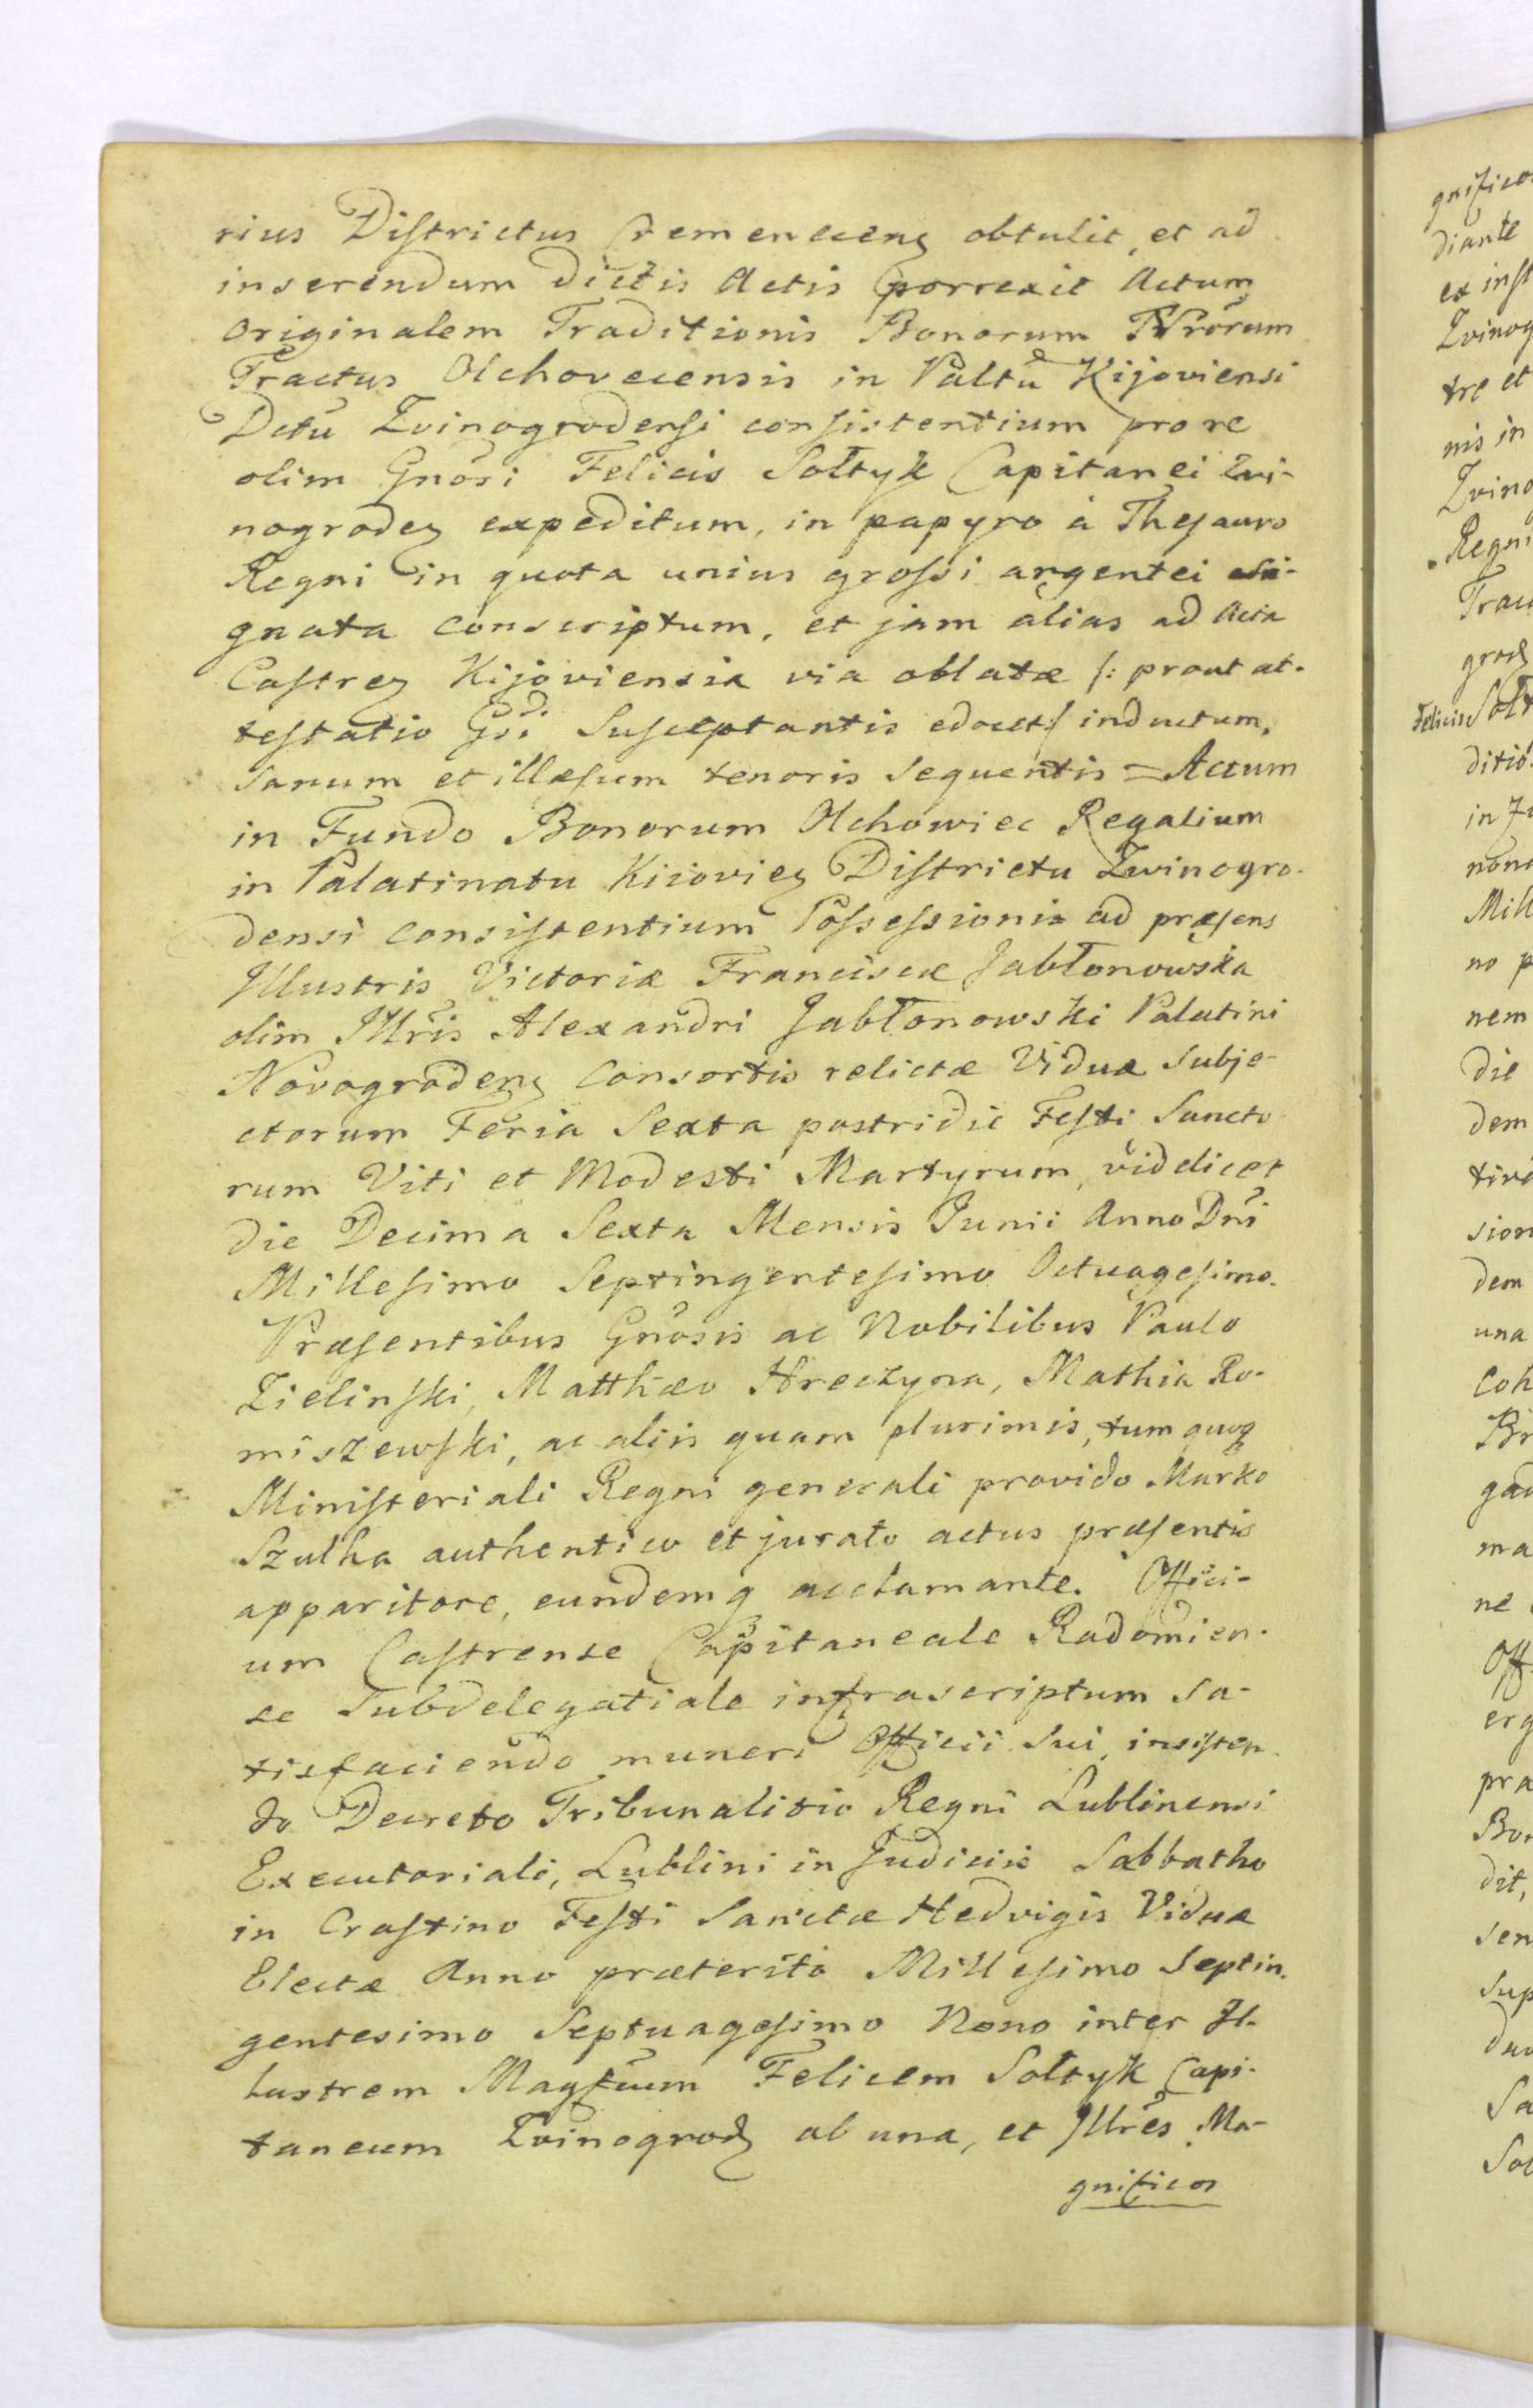 rius Districtus Cremenecens obtulit, et ad
inserendum dictis Actis porrexit Actum
Originalem Traditionis Bonorum
Tractus Olchovecensis in Paltu Kijoviensi
Dctu Zvinogrodensi consistentium pro re
olim Gnosi Felicis Sołtyk Capitanei Zvi-
nogrodes expeditum, in papyro à Thesauro
Regni in quota unius grossi argentei si-
gnata conscriptum, et jam alias ad Acta
Castres Kijoviensia via oblatæ /: prout at-
testatio Gsi Susceptantis edocet :/ inductum,
sanum et illæsum tenoris sequentis = Actum
in Fundo Bonorum Olchowiec Regalium
in Palatinatu Kijovies Districtu Zwinogro-
densi consistentium Possessionis ad præsens
Illustris Victoriæ Franciscæ Jabłonowska
olim Illris Alexandri Jabłonowski Palatini
Novogrodens Consortis relictæ Viduæ Subje-
ctorum Feria Sexta postridie Festi Sancto-
rum Viti et Modesti Martyrum, videlicet
die Decima Sexta Mensis Junii Anno Dni
Millesimo Septingentesimo Octuagesimo.
Præsentibus Gnosis ac Nobilibus Paulo
Zielinski, Matthæo Hreczyna, Mathia Ro-
miszewski, ac aliis quam plurimis, tum quoq
Ministeriali Regni generali provido Marko
Szulha authentico et jurato actus præsentis
apparitore, eundemq acclamante. Offici-
um Castrense Capitaneale Radomien-
se Subdelegatiale infrascriptum sa-
tisfaciendo muneri Officii sui, insisten-
do Decreto Tribunalitio Regni Lublinensi
Executoriali, Lublini in Judiciis Sabbatho
in Crastino Festi Sanctæ Hedvigis Viduæ
Electæ Anno præterito Millesimo Septin-
gentesimo Septuagesimo Nono inter Il-
lustrem Magfcum Felicem Sołtyk Capi-
taneum Zvinogrod ab una, et Illres Ma-
gnificos
gnifico
diante
ex inst
Zvinog
tre et
nis in
Zvino
Regni
Trac
grod
Felicis Sołt
ditio
in Ju
nono
Mill
no p
nem
die
dem
tivo
sion
dem
una
Coh
Br
gau
ma
ne
Off
erg
pra
Bon
dit,
sen
sup
duc
Sa
Soł